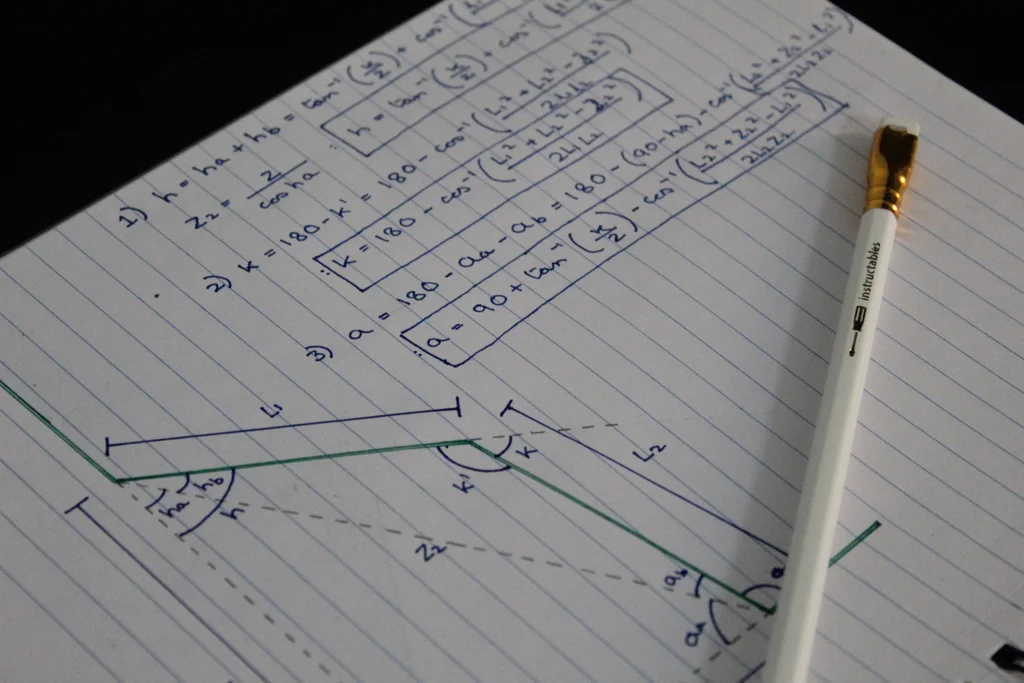 1) h = ha + hb = tan⁻¹ (x/z) + cos⁻¹ (
h = tan⁻¹ (x/z) + cos⁻¹ (
z₂ = z / cos ha
2) k = 180 - k' = 180 - cos⁻¹ (L₁² + L₂² - z₂² / 2L₁L₂)
∴ k = 180 - cos⁻¹ (L₁² + L₂² - z₂² / 2L₁L₂)
3) a = 180 - aa - ab = 180 - (90 - ha) - cos⁻¹ (L₂² + z₂² - L₁² / 2L₂z₂)
∴ a = 90 + tan⁻¹ (x/z) - cos⁻¹ (L₂² + z₂² - L₁² / 2L₂z₂)
L₁
L₂
k
k'
hb
ha
h
z₂
ab
aa
a
instructables